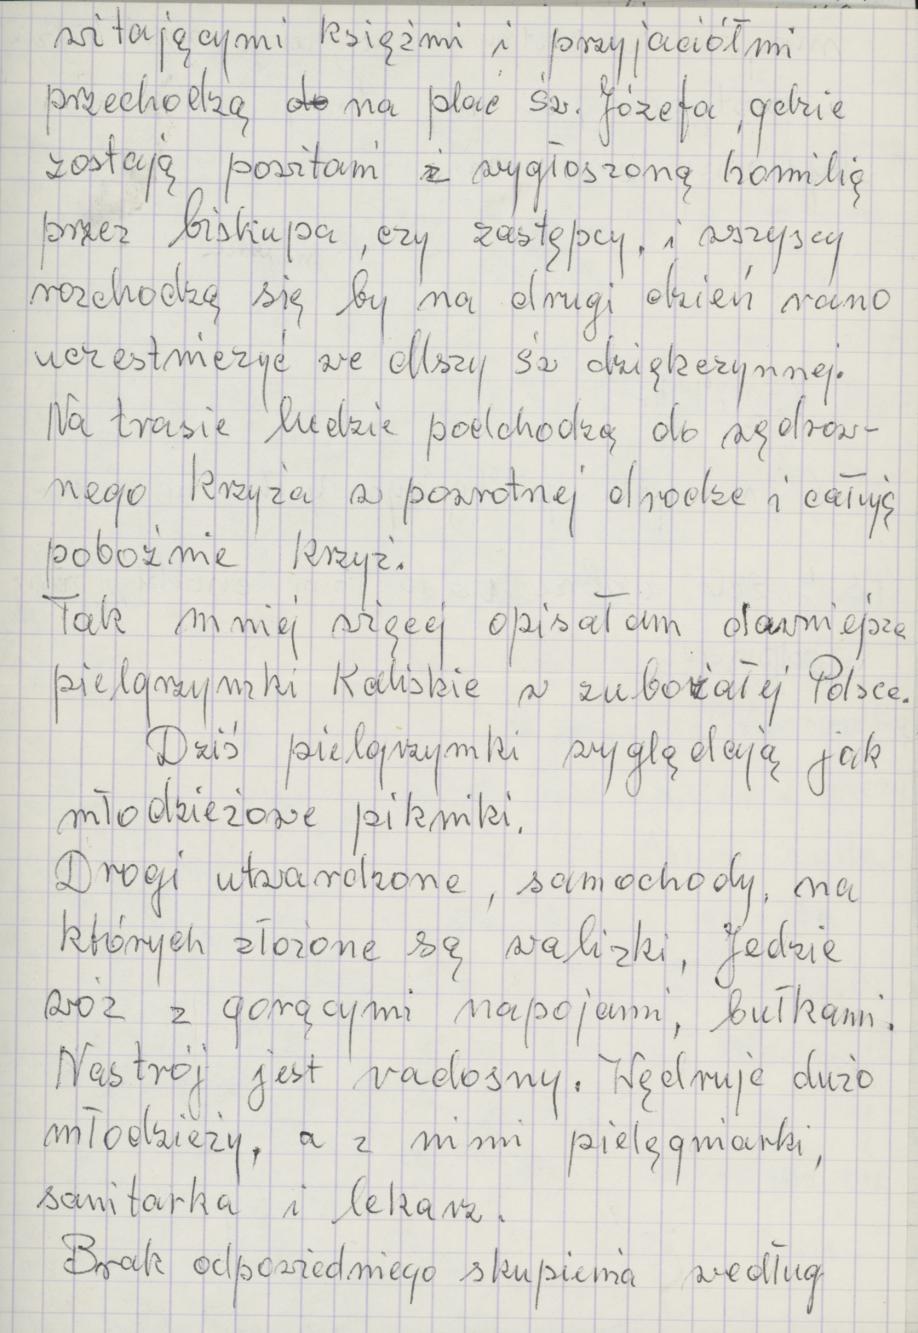 witającymi księżmi i przyjaciółmi
przechodzą do na plac św. Józefa, gdzie
zostają powitani z wygłoszoną homilią
przez biskupa, czy zastępcy, i wszyscy
rozchodzą się by na drugi dzień rano
uczestniczyć we Mszy św dziękczynnej.
Na trasie ludzie podchodzą do wędrow-
nego krzyża w powrotnej drodze i całują
pobożnie krzyż.
Tak mniej więcej opisałam dawniejsze
pielgrzymki Kaliskie w zubożałej Polsce.
Dziś pielgrzymki wyglądają jak
młodzieżowe pikniki.
Drogi utwardzone, samochody, na
których złożone są walizki, Jedzie
wóz z gorącymi napojami, bułkami.
Nastrój jest radosny. Wędruje dużo
młodzieży, a z nimi pielęgniarki,
sanitarka i lekarz.
Brak odpowiedniego skupienia według